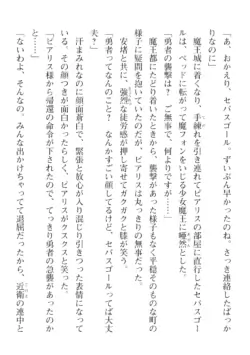 「あ、おかえり、セバスゴール。ずいぶん早かったのね。さっき連絡したばっか
りなのに」
魔王城に着くなり、手練れを引き連れてピアリスの部屋に直行したセバスゴー
ルは、ベッドに転がって魔フォンをいじる少女魔王に唖然とした。
「勇者の襲撃は？ ご無事で、何よりですが……」
魔王都にたどり着いたときから、襲撃のあった様子もなく平穏そのものな町の
様子に疑問を抱いていたが、目の前のピアリスもまったくの無事だった。
安堵と共に、強烈な徒労感が押し寄せてガクガクと膝が笑う。
「勇者ってなんのこと？ なんかすごい顔してるけど、セバスゴールって大丈
夫？」
汗まみれなうえに顔面蒼白で、緊張と放心が入り混じり引きつった表情になって
いる、その顔つきが面白かったらしく、ピアリスがクスクスと笑った。
「ピアリス様から帰還の命令が下されたので、てっきり勇者の急襲があったのか
と……」
「ないわよ、そんなの。みんな出かけちゃってて退屈だったから。近衛の連中と